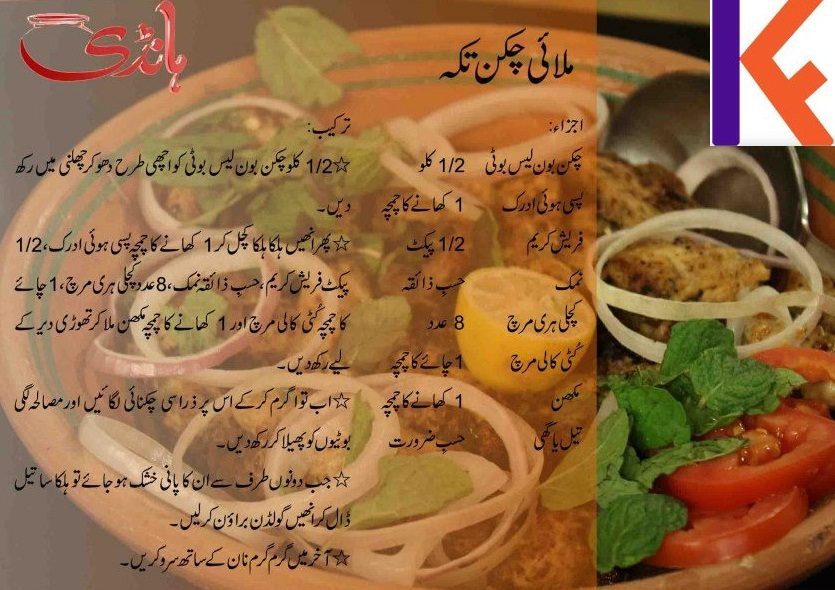 ہانڈی
ملائی چکن تکہ
KF
اجزاء:
چکن بون لیس بوٹی 1/2 کلو
پسی ہوئی ادرک 1 کھانے کا چمچہ
فریش کریم 1/2 پیکٹ
نمک حسبِ ذائقہ
کچلی ہری مرچ 8 عدد
کُٹی کالی مرچ 1 چائے کا چمچہ
مکھن 1 کھانے کا چمچہ
تیل یا گھی حسبِ ضرورت
ترکیب:
☆1/2 کلو چکن بون لیس بوٹی کو اچھی طرح دھو کر چھلنی میں رکھ
دیں۔
☆ پھر انھیں ہلکا ہلکا کچل کر 1 کھانے کا چمچہ پسی ہوئی ادرک، 1/2
پیکٹ فریش کریم، حسبِ ذائقہ نمک، 8 عدد کچلی ہری مرچ، 1 چائے
کا چمچہ کُٹی کالی مرچ اور 1 کھانے کا چمچہ مکھن ملا کر تھوڑی دیر کے
لیے رکھ دیں۔
☆ اب توا گرم کر کے اس پر ذرا سی چکنائی لگائیں اور مصالحہ لگی
بوٹیوں کو پھیلا کر رکھ دیں۔
☆ جب دونوں طرف سے ان کا پانی خشک ہو جائے تو ہلکا سا تیل
ڈال کر انھیں گولڈن براؤن کر لیں۔
☆ آخر میں گرم گرم نان کے ساتھ سرو کریں۔